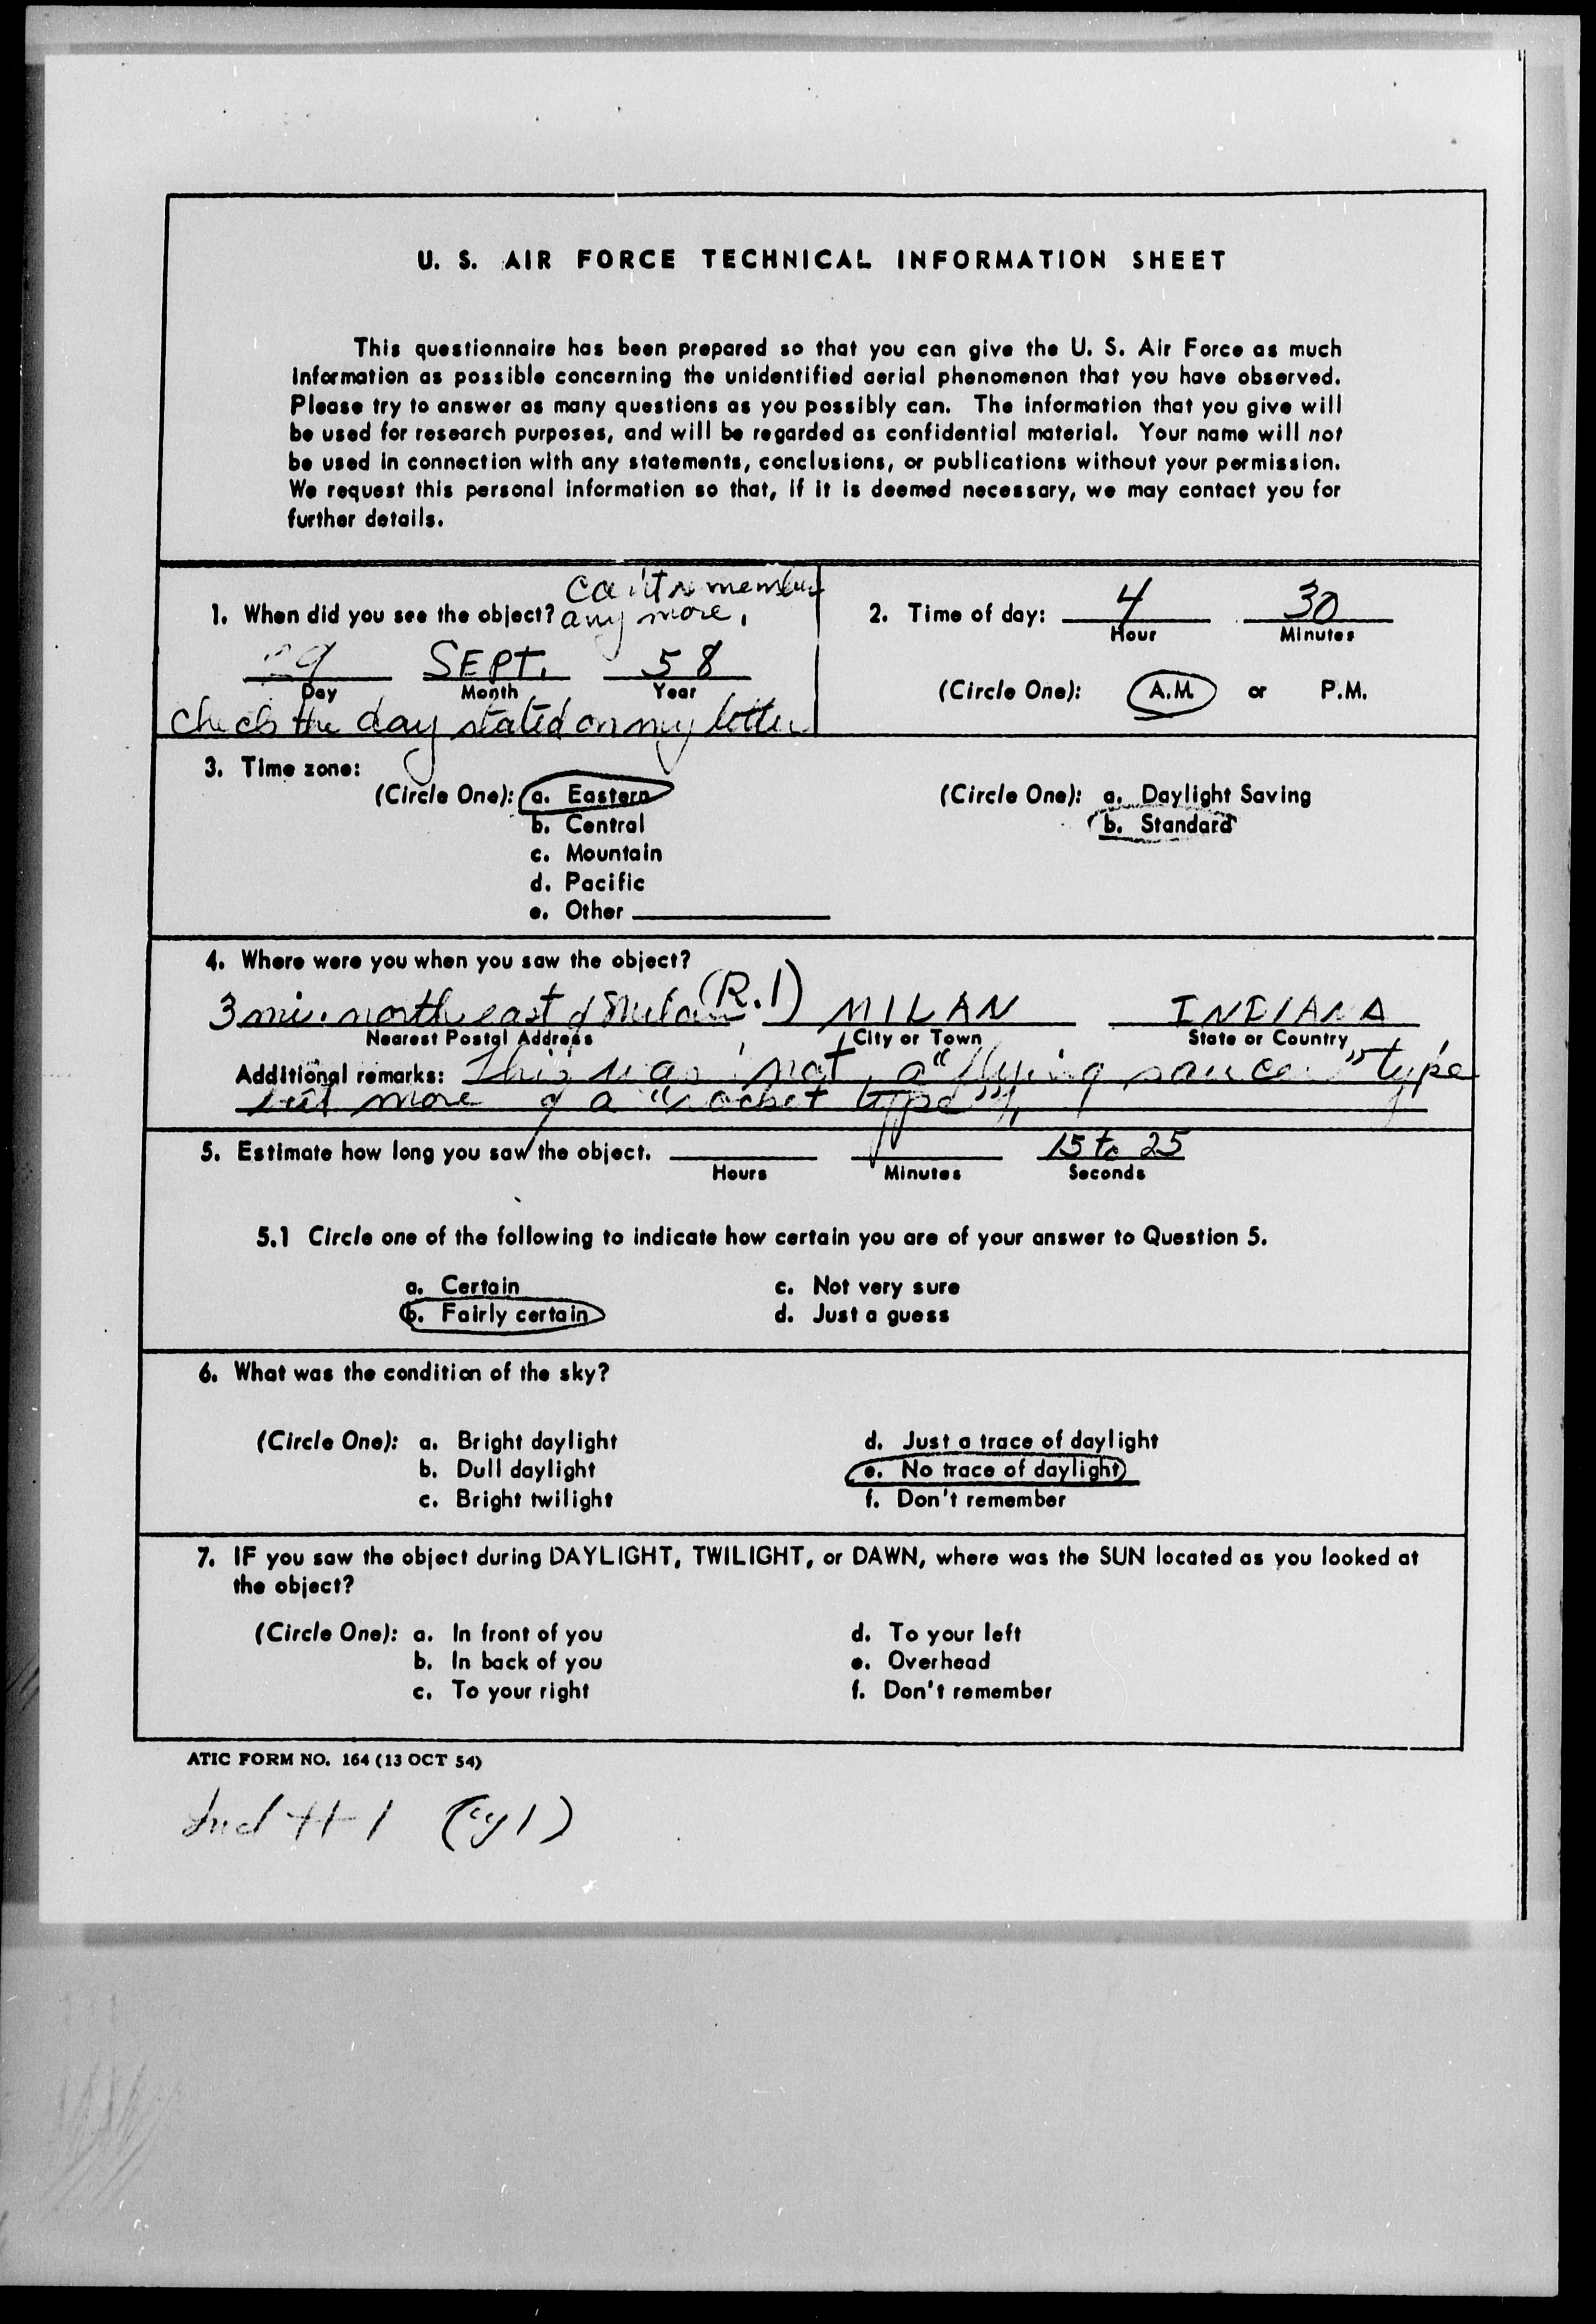 U. S. AIR FORCE TECHNICAL INFORMATION SHEET
This questionnaire has been prepared so that you can give the U. S. Air Force as much
information as possible concerning the unidentified aerial phenomenon that you have observed.
Please try to answer as many questions as you possibly can. The information that you give will
be used for research purposes, and will be regarded as confidential material. Your name will not
be used in connection with any statements, conclusions, or publications without your permission.
We request this personal information so that, if it is deemed necessary, we may contact you for
further details.
can't remember
1. When did you see the object? any more.
29 SEPT. 58
Day Month Year
check the day stated on my letter
2. Time of day: 4 30
Hour Minutes
(Circle One): A.M. or P.M.
3. Time zone:
(Circle One): a. Eastern
b. Central
c. Mountain
d. Pacific
e. Other
(Circle One): a. Daylight Saving
b. Standard
4. Where were you when you saw the object?
3 mi. north east of Milan (R.1) MILAN INDIANA
Nearest Postal Address City or Town State or Country
Additional remarks: This was not a "flying saucer" type
but more of a "rocket type".
5. Estimate how long you saw the object. 15 to 25
Hours Minutes Seconds
5.1 Circle one of the following to indicate how certain you are of your answer to Question 5.
a. Certain c. Not very sure
b. Fairly certain d. Just a guess
6. What was the condition of the sky?
(Circle One): a. Bright daylight d. Just a trace of daylight
b. Dull daylight e. No trace of daylight
c. Bright twilight f. Don't remember
7. IF you saw the object during DAYLIGHT, TWILIGHT, or DAWN, where was the SUN located as you looked at
the object?
(Circle One): a. In front of you d. To your left
b. In back of you e. Overhead
c. To your right f. Don't remember
ATIC FORM NO. 164 (13 OCT 54)
Incl # 1 (cy 1)